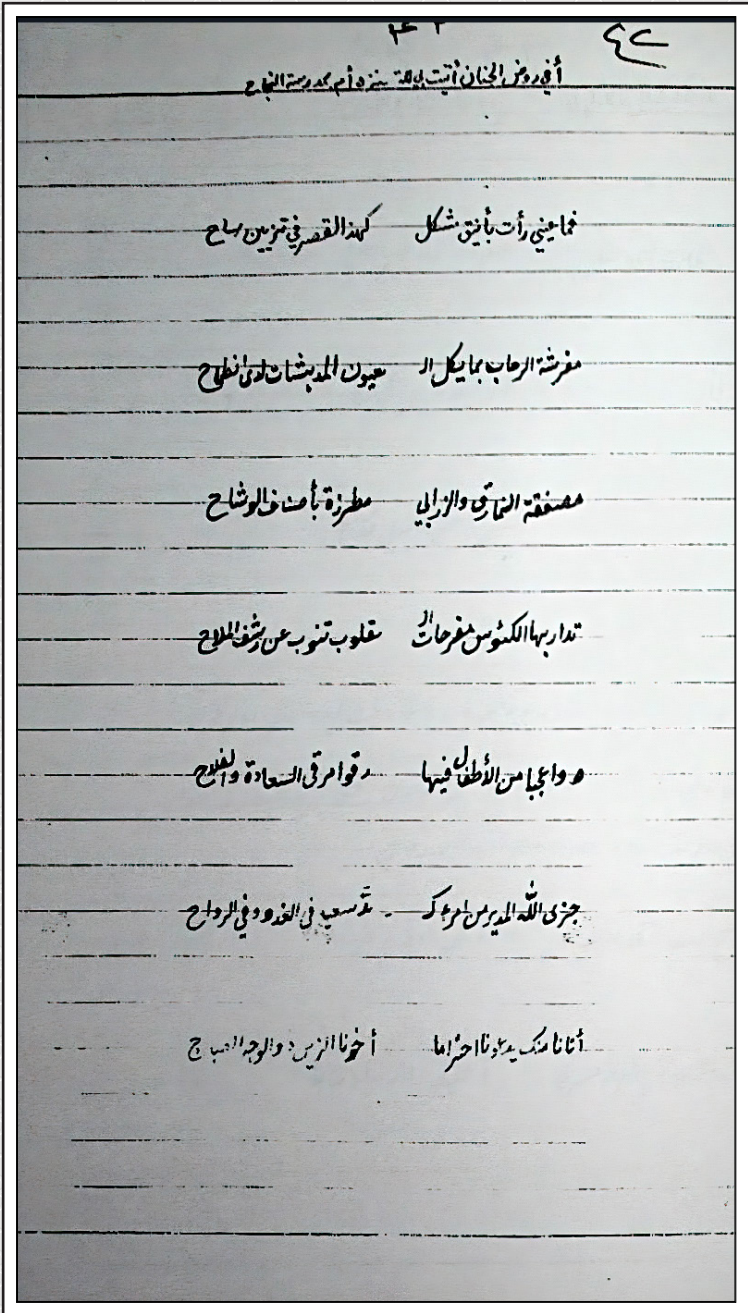 ٤٢
أفي روض الجنان أتيت ليلة تنزه أم بمدرسة النجاح
فما عيني رأت بأنيق شكل كهذا القصر في تزيين ساح
مفرشة الرحاب بما يكل الـ ـعيون المدهشات لدى
مصفقة النمارق والزرابي مطرزة بأصناف الوشاح
تدار بها الكئوس مفرحات الـ ـقلوب تنوب عن رشف الملاح
وواعجبا من الأطفال فيها رقوا مرقى السعادة والفلاح
جزى الله المدير من امرء كـ ـدّ سعيه في الغدو وفي الرواح
أتانا منك يدعونا احتراما أخونا الزين والوجه الصباح